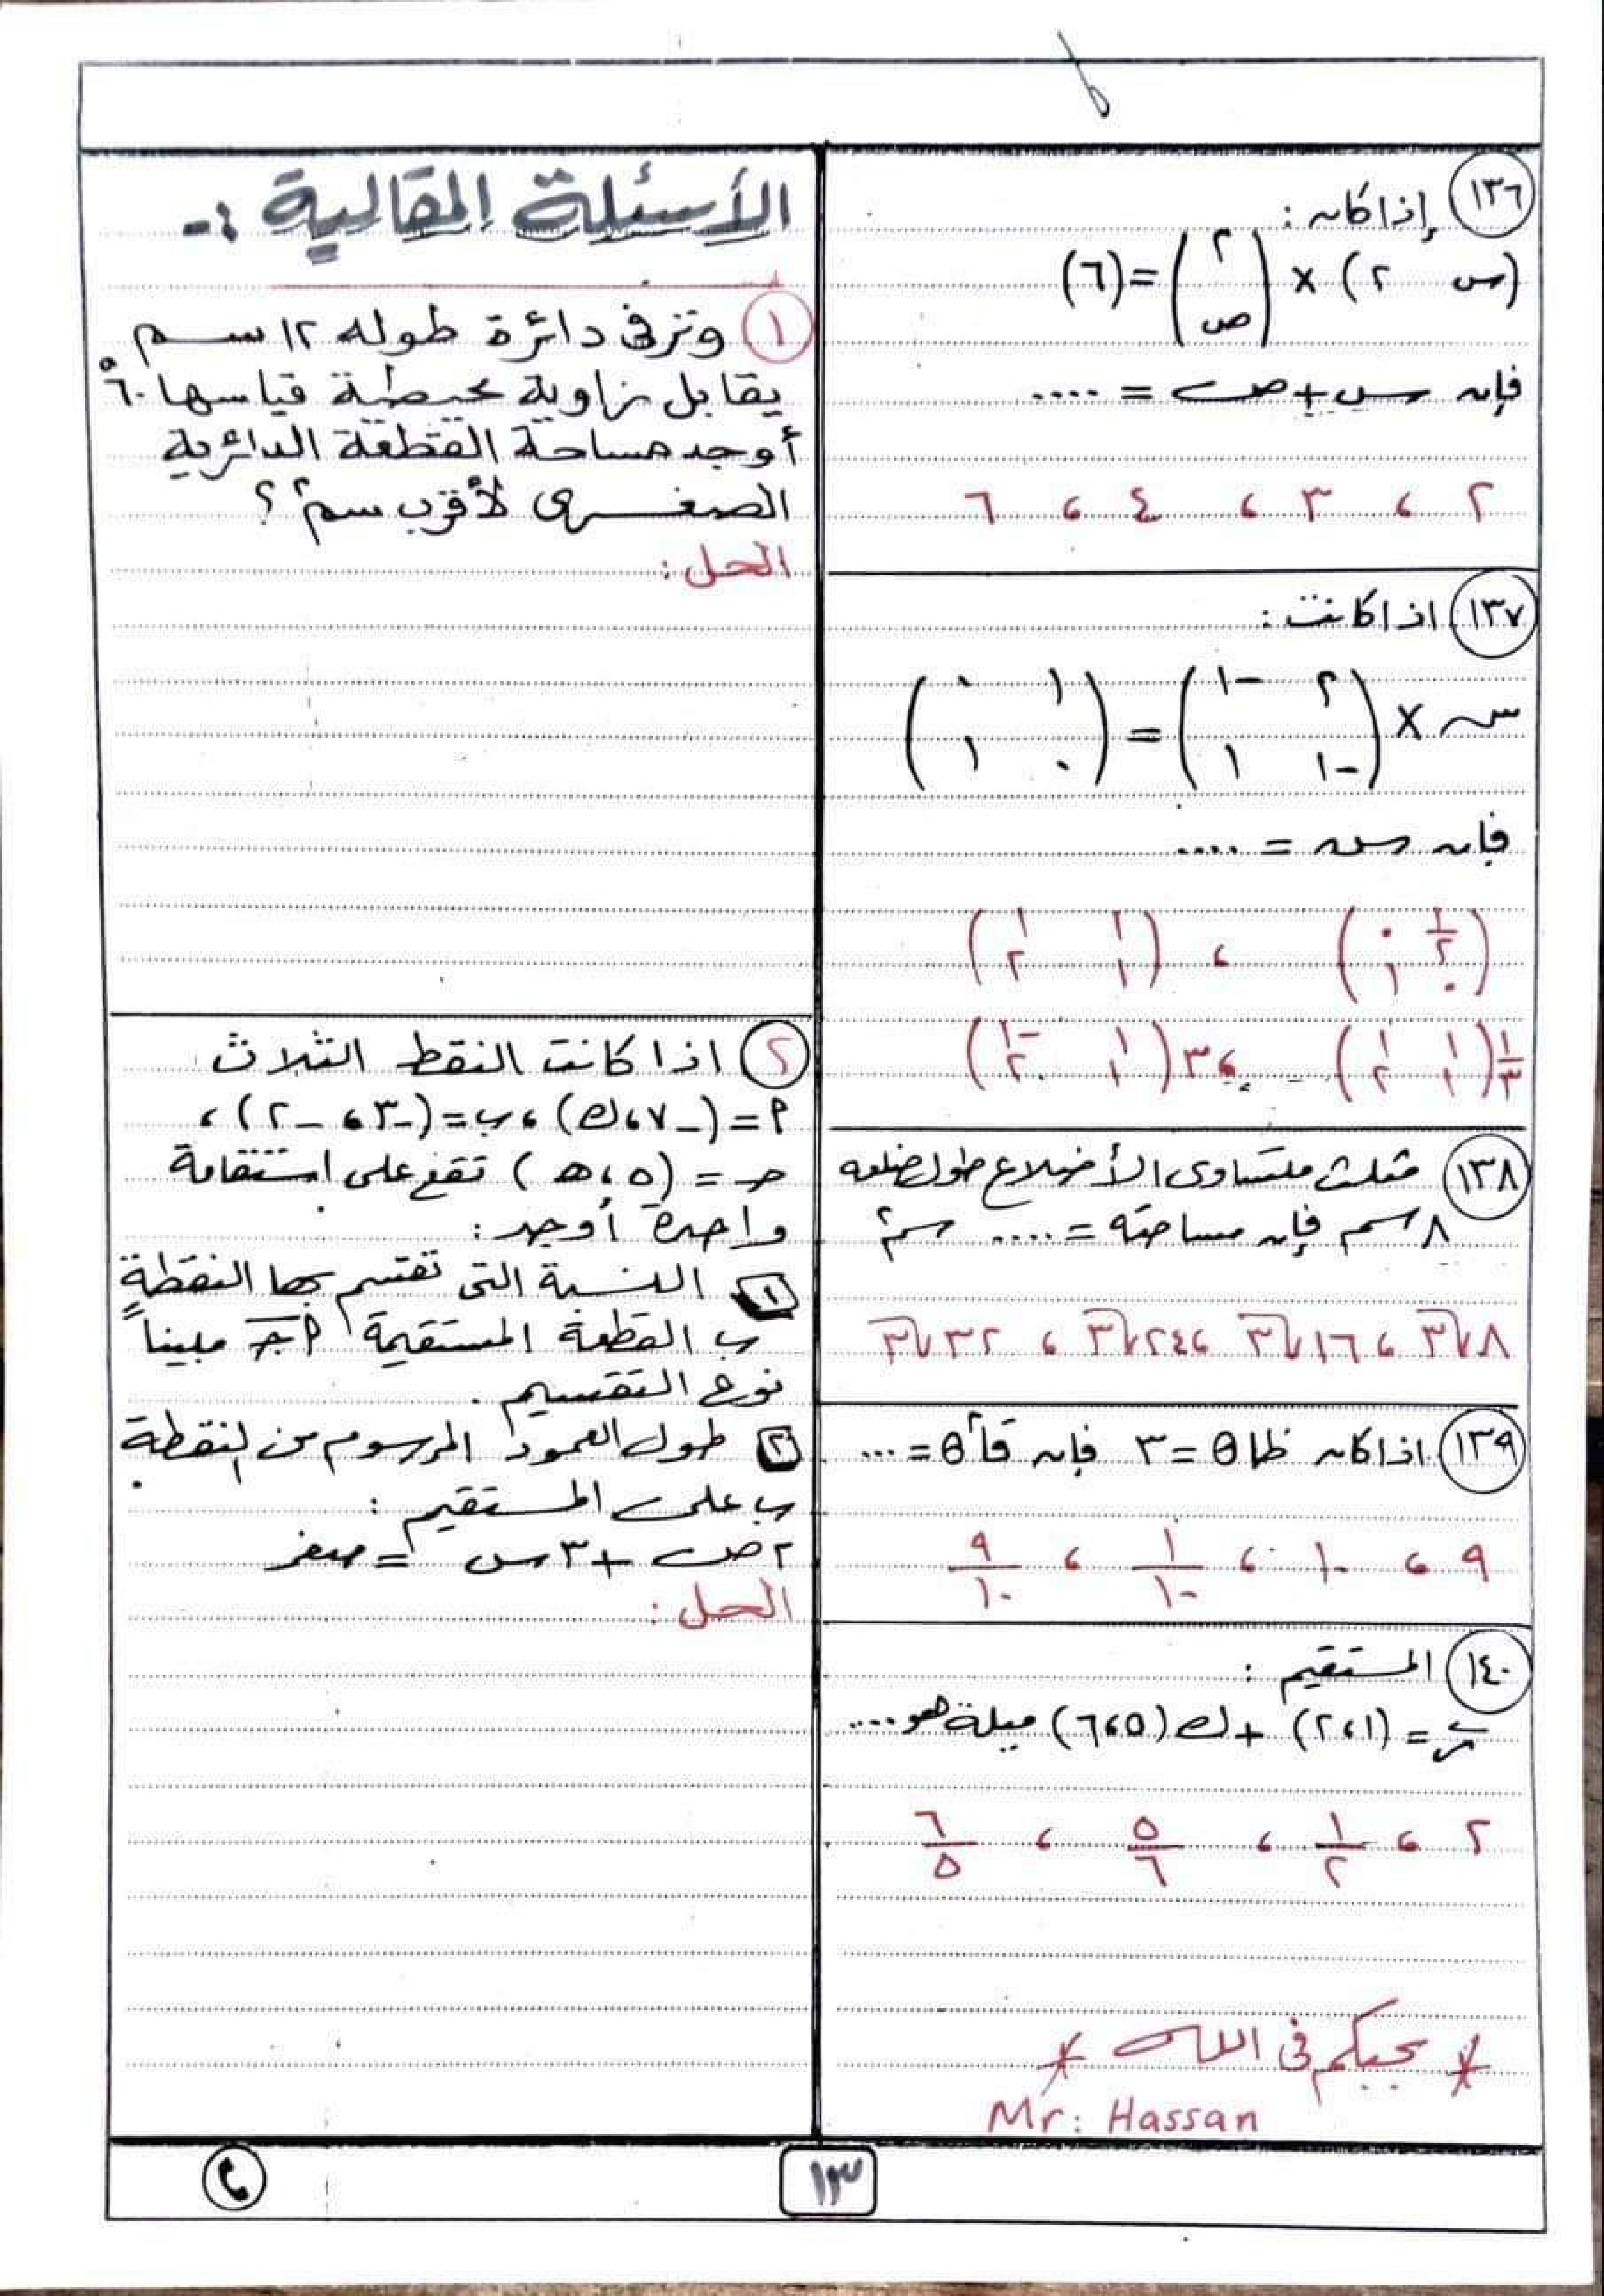 ١٣٦ إذا كان :
(س ٢) × (٢ ص) = (٦)
فإن س + ص = ....
٢ ، ٣ ، ٤ ، ٦
١٣٧ اذا كانت :
س × (٢ -١
-١ ١) = (١ ٠
٠ ١)
فإن س = ....
(١/٢ ٠
٠ ١) ، (١ ١
١ ٢)
١/٣ (١ ١
١ ٢) ، ٣ (١ -١
١ ٢)
١٣٨ مثلث متساوى الأضلاع طول ضلعه
٨ سم فإن مساحته = .... سم٢
٨√٣ ، ١٦√٣ ، ٢٤√٣ ، ٣٢√٣
١٣٩ اذا كان ظا θ = ٣ فإن قا٢ θ = ...
٩ ، ١٠ ، ١/١٠ ، ٩/١٠
١٤٠ المستقيم :
ر = (١ ، ٢) + ك (٥ ، ٦) ميلة هو ....
٢ ، ١/٢ ، ٥/٦ ، ٦/٥
* بحبكم فى الله *
Mr: Hassan
الأسئلة المقالية :-
١ وتر فى دائرة طوله ١٢ سم
يقابل زاوية محيطية قياسها ٦٠°
أوجد مساحة القطعة الدائرية
الصغرى لأقرب سم٢ ؟
الحل :
٢ اذا كانت النقط الثلاث
٩ = (-٧ ، ك) ، ب = (-٣ ، -٢) ،
ج = (٥ ، ه) تقع على استقامة
واحدة أوجد :
١ النسبة التى تقتسم بها النقطة
ب القطعة المستقيمة أج مبيناً
نوع التقسيم .
٢ طول العمود المرسوم من النقطة
ب على المستقيم :
٢ص + ٣س = صفر
الحل :
١٣